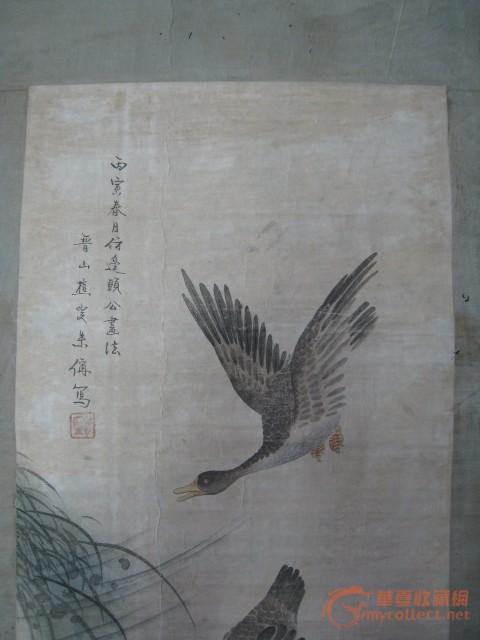 丙寅春月仿邊頤公畫法
山樵叟朱偁寫
華夏收藏網
mycollect.net